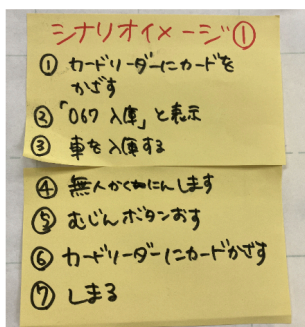 シナリオイメージ①
① カードリーダーにカードを
かざす
② 「067 入庫」と表示
③ 車を入庫する
④ 無人かくにんします
⑤ むじんボタンおす
⑥ カードリーダーにカードかざす
⑦ しまる